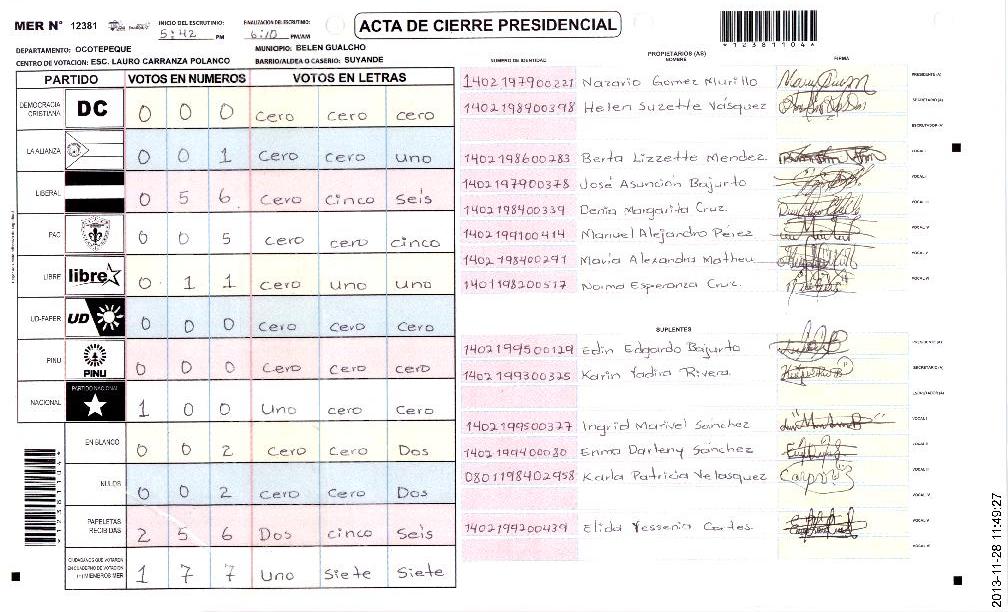 MER N° 12381 INICIO DEL ESCRUTINIO: 5:42 PM FINALIZACION DEL ESCRUTINIO: 6:10 PM/AM ACTA DE CIERRE PRESIDENCIAL
*12381104*
DEPARTAMENTO: OCOTEPEQUE MUNICIPIO: BELEN GUALCHO
CENTRO DE VOTACION: ESC. LAURO CARRANZA POLANCO BARRIO/ALDEA O CASERIO: SUYANDE
PARTIDO VOTOS EN NUMEROS VOTOS EN LETRAS
DEMOCRACIA CRISTIANA DC 0 0 0 Cero Cero cero
LA ALIANZA 0 0 1 Cero cero uno
LIBERAL 0 5 6 Cero Cinco Seis
PAC 0 0 5 Cero cero cinco
LIBRE libre 0 1 1 Cero uno uno
UD-FAPER UD 0 0 0 Cero Cero Cero
PINU PINU 0 0 0 Cero Cero Cero
NACIONAL PARTIDO NACIONAL 1 0 0 Uno cero Cero
EN BLANCO 0 0 2 Cero Cero Dos
NULOS 0 0 2 Cero Cero Dos
PAPELETAS RECIBIDAS 2 5 6 Dos cinco Seis
CIUDADANOS QUE VOTARON EN CUADERNO DE VOTACION (+) MIEMBROS MER 1 7 7 Uno Siete Siete
PROPIETARIOS (AS)
NUMERO DE IDENTIDAD NOMBRE FIRMA
1402197900221 Nazario Gomez Murillo PRESIDENTE (A)
1402198900398 Helen Suzette Vásquez SECRETARIO (A)
ESCRUTADOR (A)
1402198600283 Berta Lizzette Mendez. VOCAL I
1402197900378 José Asunción Bajurto VOCAL II
1402198400339 Denia Margarita Cruz. VOCAL III
1402199100414 Manuel Alejandro Pérez VOCAL IV
1402198400291 Maria Alexandra Matheu VOCAL V
1401198200517 Norma Esperanza Cruz. VOCAL VI
SUPLENTES
1402199500129 Edin Edgardo Bajurto PRESIDENTE (A)
1402199300325 Karin Yadira Rivera. SECRETARIO (A)
ESCRUTADOR (A)
1402199500327 Ingrid Marivel Sánchez VOCAL I
1402199400080 Enma Darleny Sánchez VOCAL II
0801198402958 Karla Patricia Velasquez VOCAL III
VOCAL IV
1402199200439 Elida Yessenia Cortes. VOCAL V
VOCAL VI
2013-11-28 11:49:27